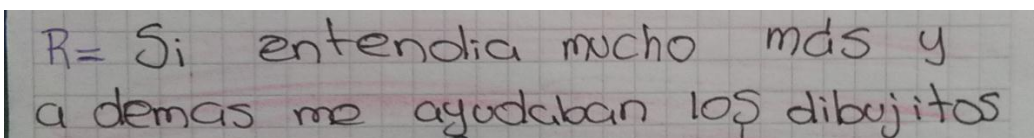 R= Si entendia mucho más y
a demas me ayudaban los dibujitos